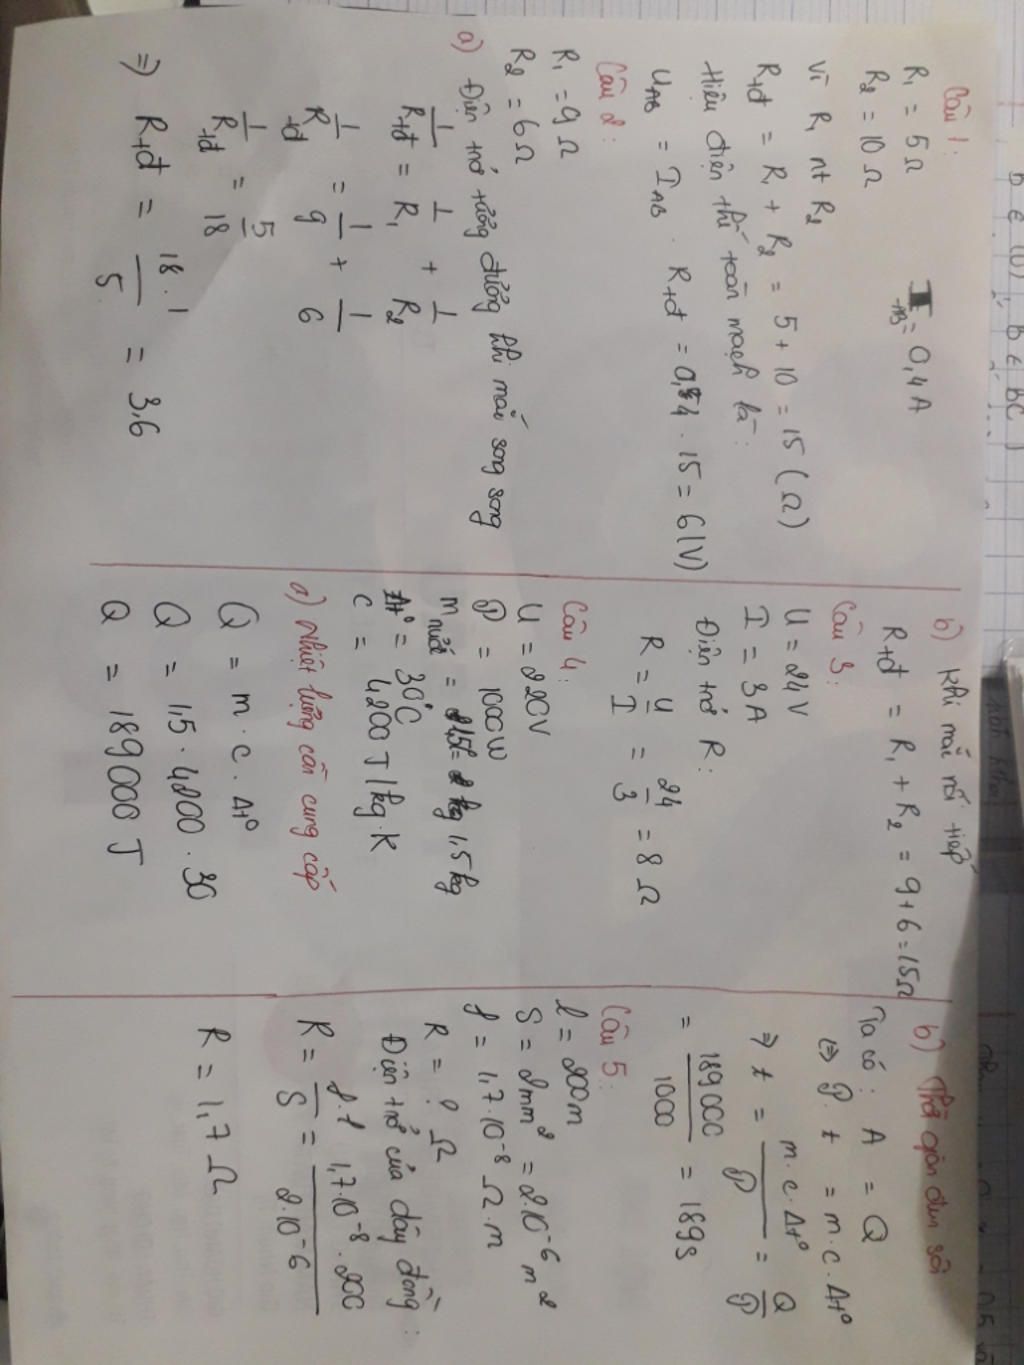 Câu 1:
R₁ = 5Ω
R₂ = 10Ω
I_AB = 0,4A
Vì R₁ nt R₂
Rtđ = R₁ + R₂ = 5 + 10 = 15 (Ω)
Hiệu điện thế toàn mạch là:
U_AB = I_AB . Rtđ = 0,4 . 15 = 6(V)
Câu 2:
R₁ = 9Ω
R₂ = 6Ω
a) Điện trở tương đương khi mắc song song
1/Rtđ = 1/R₁ + 1/R₂
1/Rtđ = 1/9 + 1/6
1/Rtđ = 5/18
⇒ Rtđ = 18.1/5 = 3,6
b) Khi mắc nối tiếp
Rtđ = R₁ + R₂ = 9+6 = 15Ω
Câu 3:
U = 24V
I = 3A
Điện trở R:
R = U/I = 24/3 = 8Ω
Câu 4:
U = 220V
P = 1000W
m nước = 1,5kg
Δt° = 30°C
C = 4200 J/kg.K
a) Nhiệt lượng cần cung cấp
Q = m.c.Δt°
Q = 1,5.4200.30
Q = 189000 J
b) Thời gian đun sôi
Ta có: A = Q
⇔ P.t = m.c.Δt°
⇒ t = m.c.Δt°/P = Q/P
= 189000/1000 = 189s
Câu 5:
l = 200m
S = 2mm² = 2.10⁻⁶ m²
ρ = 1,7.10⁻⁸ Ω.m
R = ? Ω
Điện trở của dây đồng:
R = ρ.l/S = 1,7.10⁻⁸.200/2.10⁻⁶
R = 1,7Ω